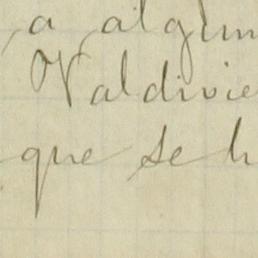 , a algun
Valdivie
que se h